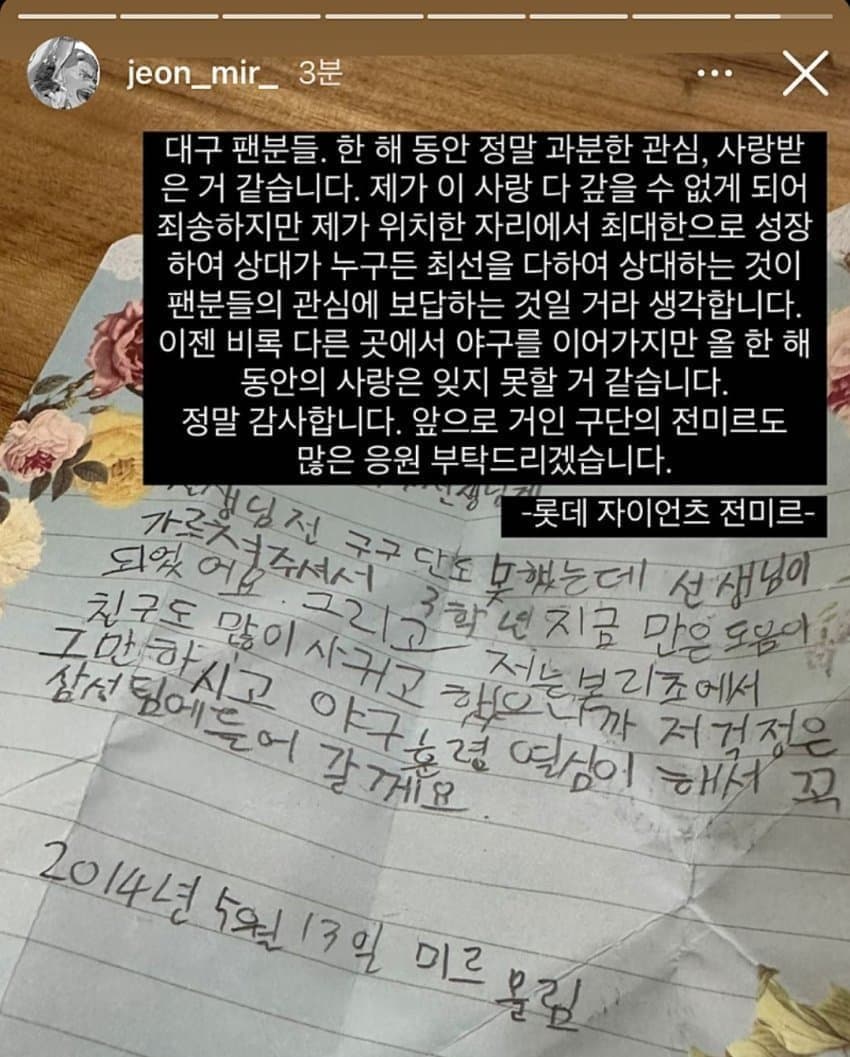 jeon_mir_ 3분
대구 팬분들. 한 해 동안 정말 과분한 관심, 사랑받
은 거 같습니다. 제가 이 사랑 다 갚을 수 없게 되어
죄송하지만 제가 위치한 자리에서 최대한으로 성장
하여 상대가 누구든 최선을 다하여 상대하는 것이
팬분들의 관심에 보답하는 것일 거라 생각합니다.
이젠 비록 다른 곳에서 야구를 이어가지만 올 한 해
동안의 사랑은 잊지 못할 거 같습니다.
정말 감사합니다. 앞으로 거인 구단의 전미르도
많은 응원 부탁드리겠습니다.
-롯데 자이언츠 전미르-
선생님전 구구단도 못했는데 선생님이
가르쳐주셔서 3학년 지금 만은 도움이
되었어요. 그리고 저는 본리초에서
친구도 많이 사귀고 했으니까 저 걱정은
그만하시고 야구훈령 열심이 해서 꼭
삼성팀에들어 갈께요.
2014년 5월 13일 미르 올림